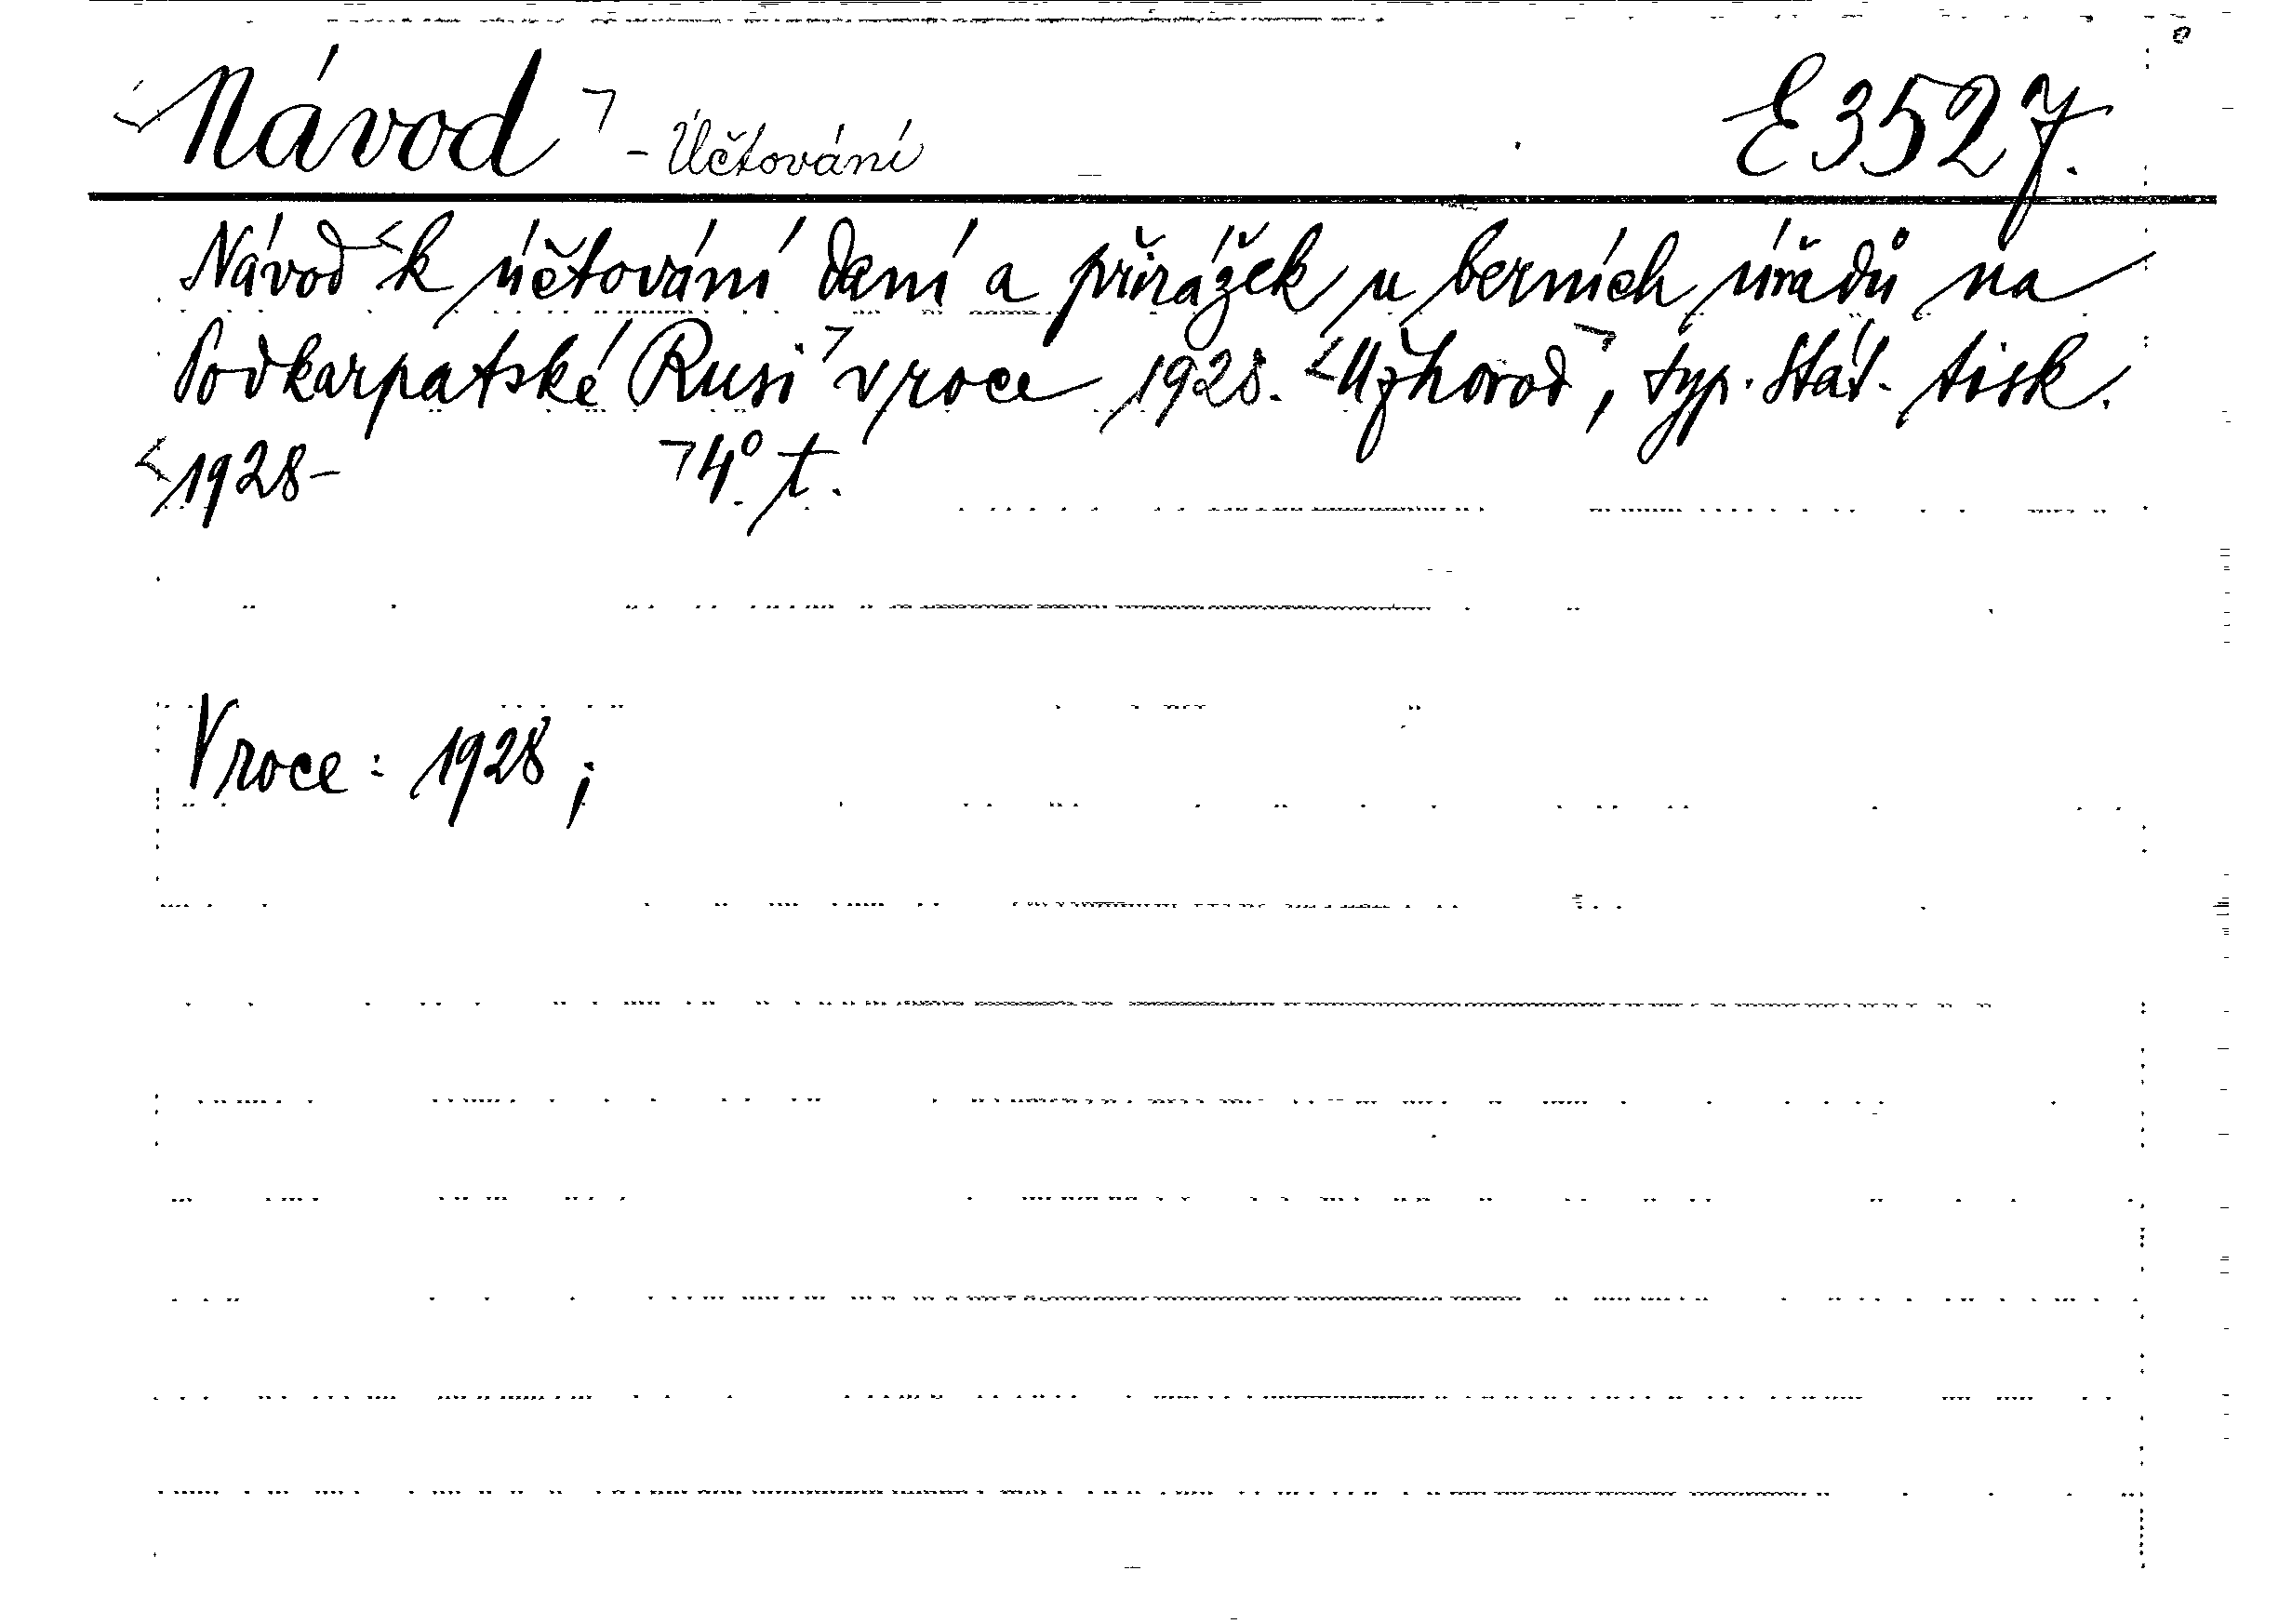 Návod - Účtování E 3527.
Návod k účtování daní a přirážek u berních úřadů na
Podkarpatské Rusi v roce 1928. Užhorod, typ. Stát. tisk.
1928- 4° t.
V roce: 1928;